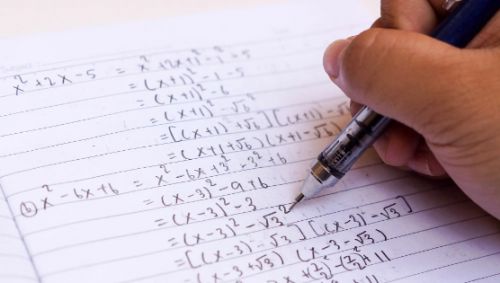 x² + 2x - 5 = x² + 2x + 1² - 1² - 5
= (x+1)² - 1 - 5
= (x+1)² - 6
= (x+1)² - √6²
= [(x+1) + √6] [(x+1) - √6
= (x+1+√6) (x+1-√6)
② x² - 6x + 6 = x² - 6x + 3² - 3² + 6
= (x-3)² - 9 + 6
= (x-3)² - 3
= (x-3)² - √3²
= [(x-3) - √3] [(x-3) - √3]
= (x-3+√3) (x-3-√3)